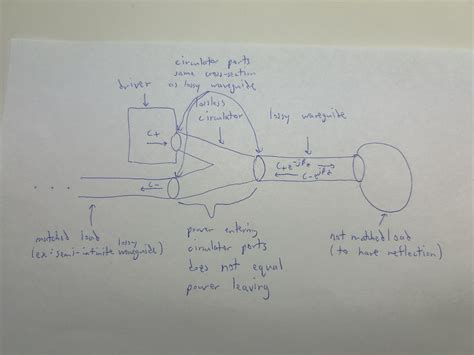 circulator ports
same cross-section
as lossy waveguide
driver
lossless
circulator
lossy waveguide
C+
C+e^-jβz
C-
C-e^jβz
. . .
matched load
(ex: semi-infinite lossy waveguide)
power entering
circulator ports
does not equal
power leaving
not matched load
(to have reflection)